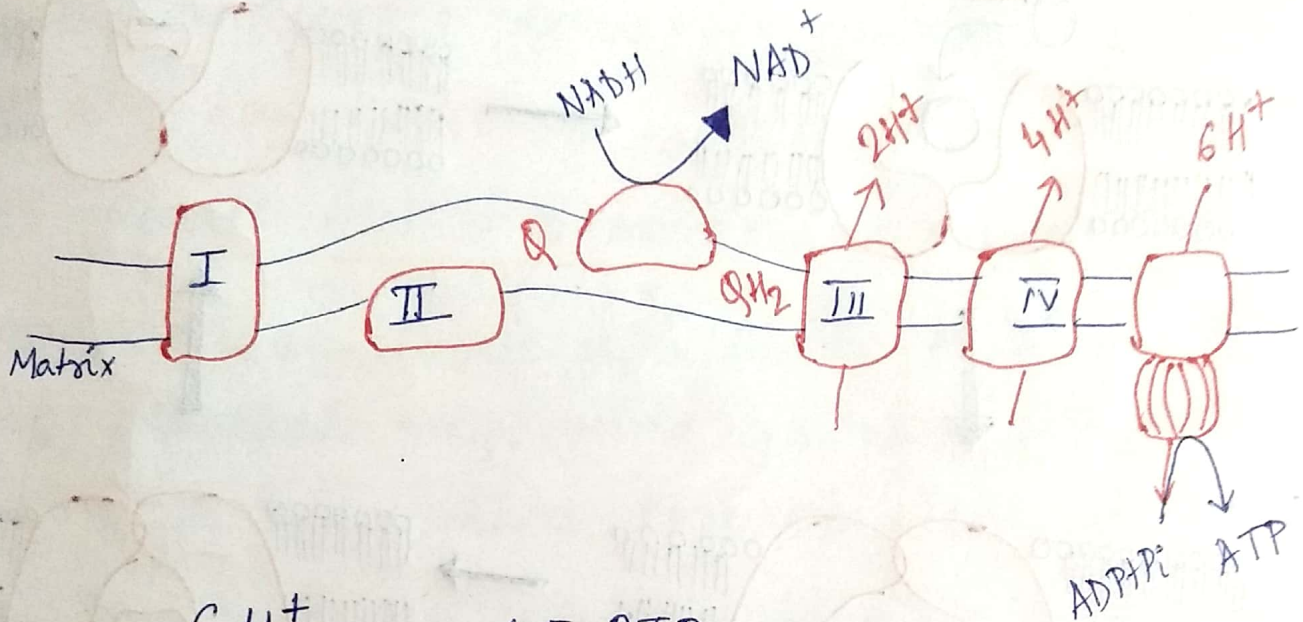 NADH
NAD+
2H+
4H+
6H+
I
II
Q
QH2
III
IV
Matrix
ADP+Pi
ATP